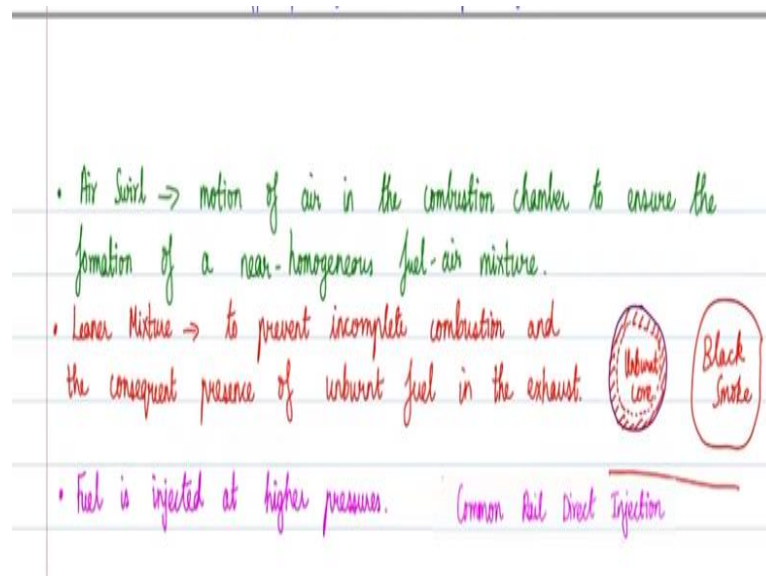 • Air Swirl → motion of air in the combustion chamber to ensure the
formation of a near-homogeneous fuel-air mixture.
• Leaner Mixture → to prevent incomplete combustion and
the consequent presence of unburnt fuel in the exhaust.
Unburnt
core
Black
Smoke
• Fuel is injected at higher pressures. Common Rail Direct Injection